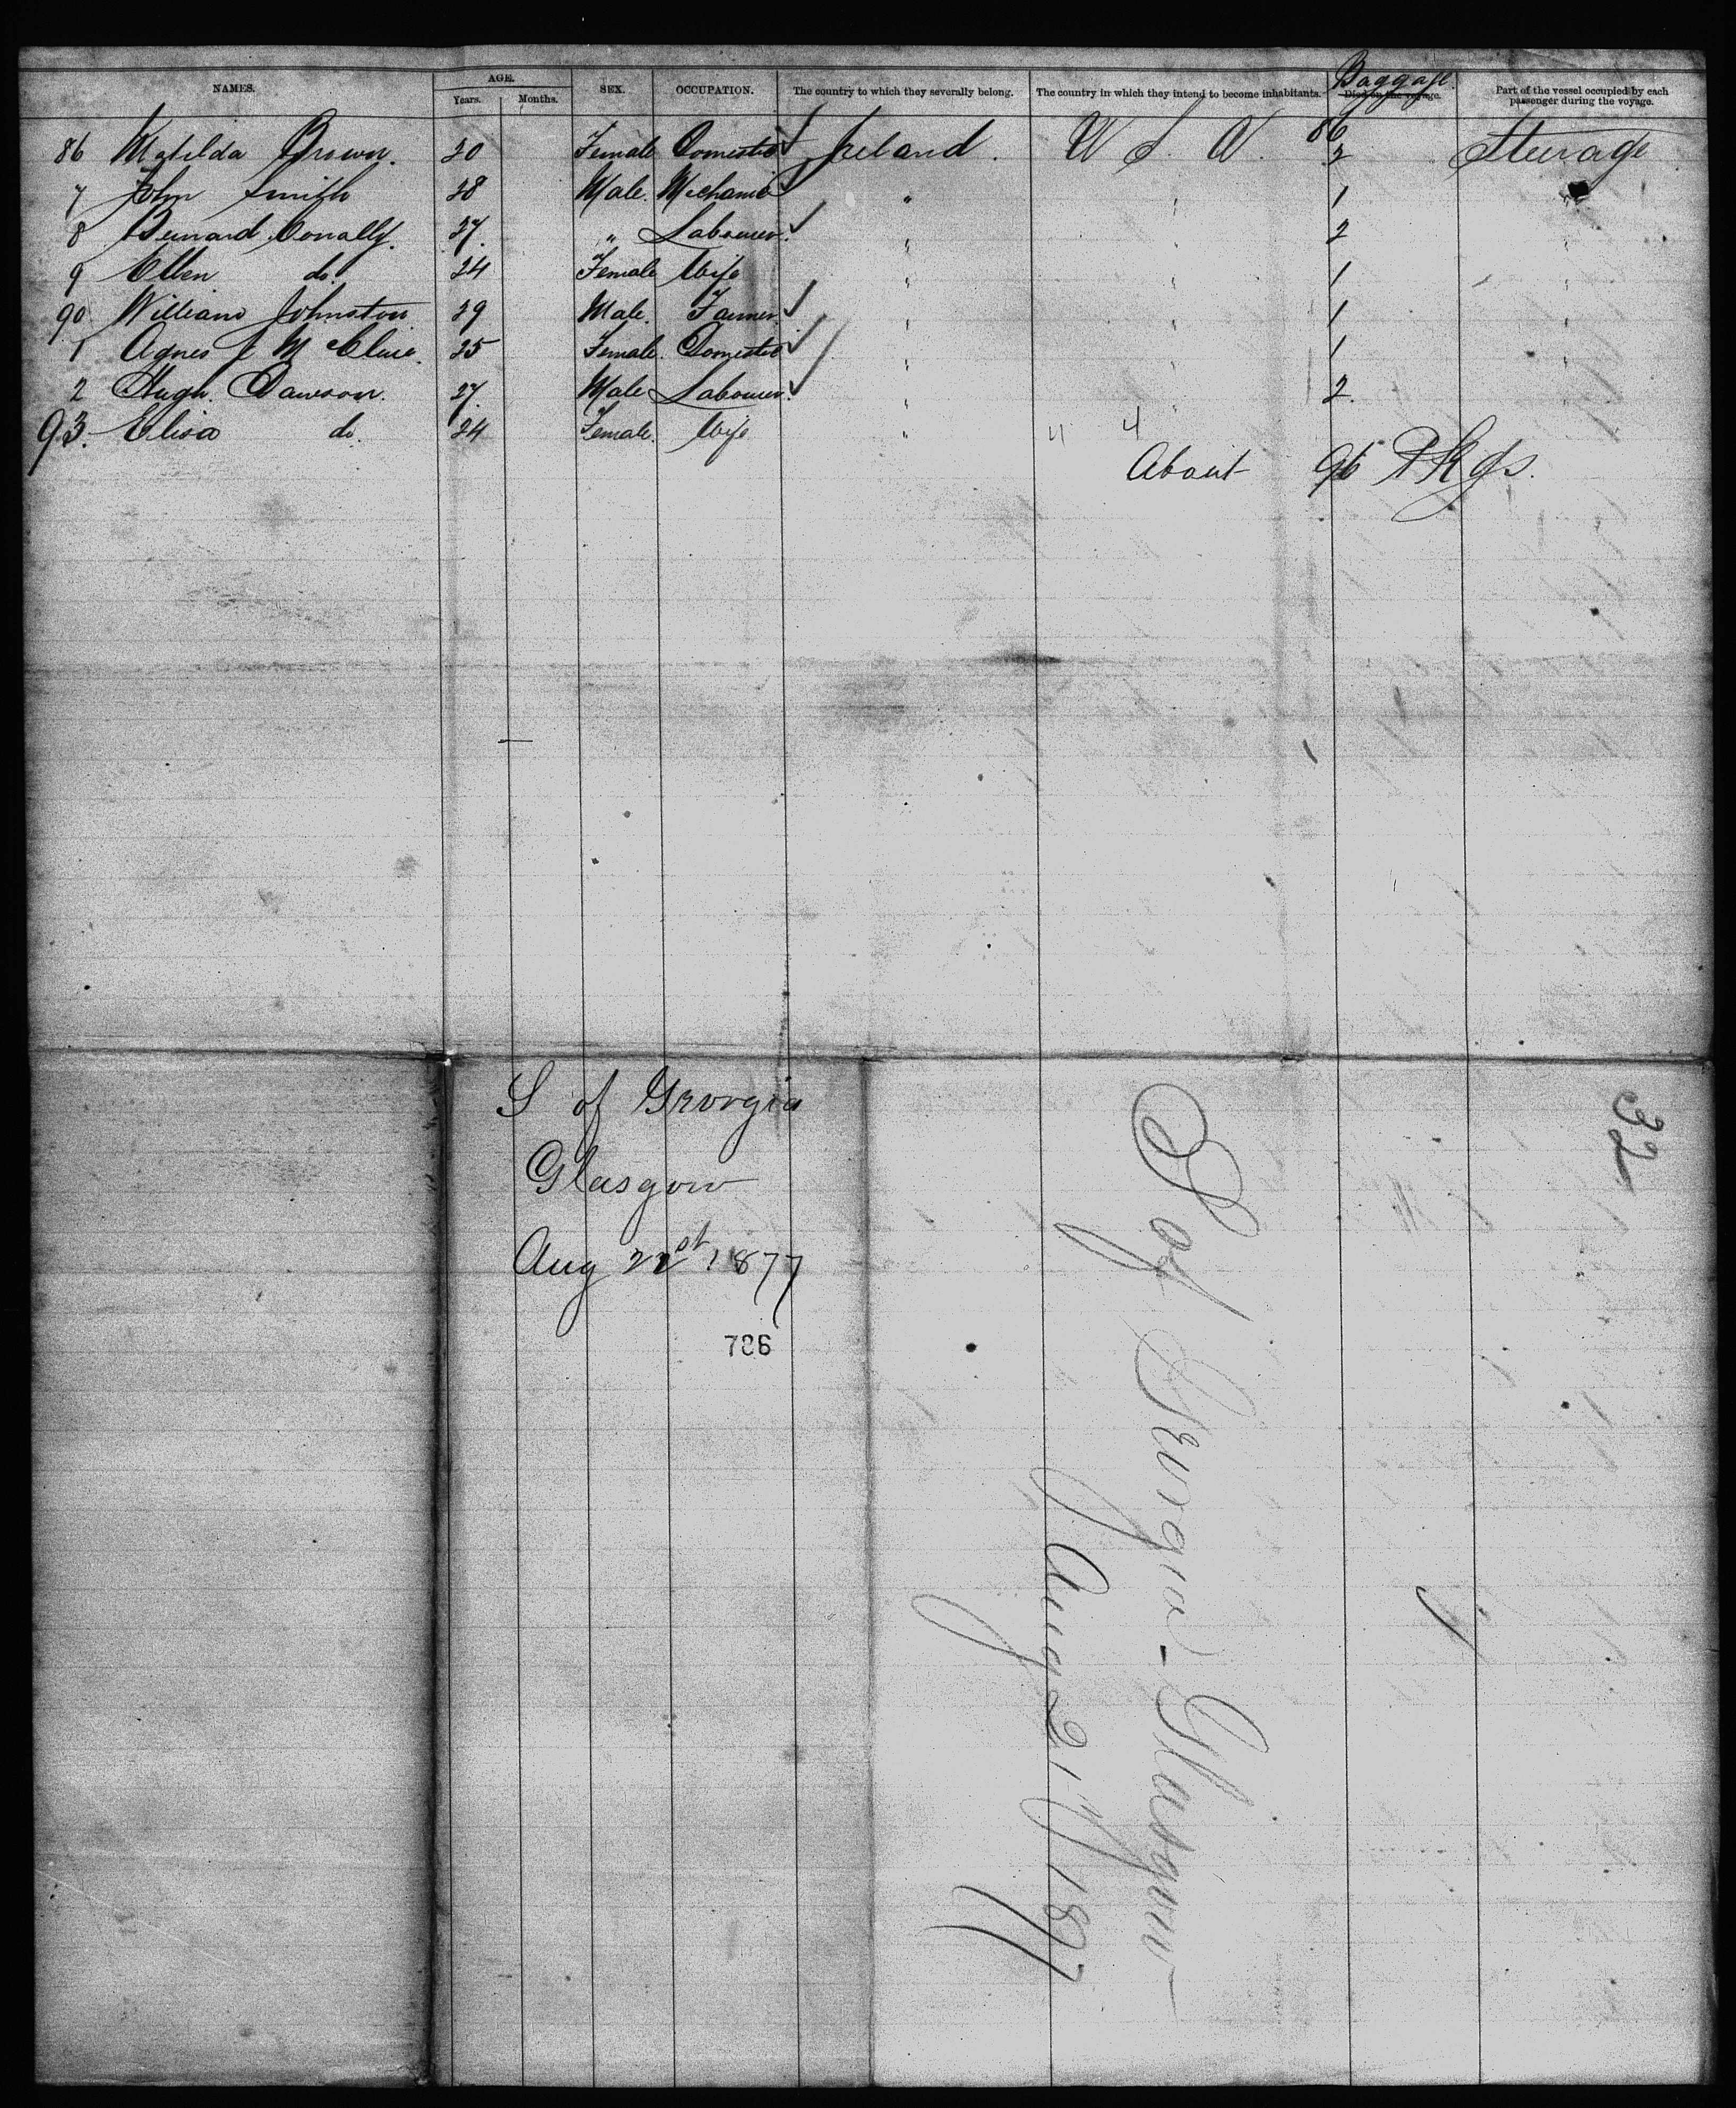 NAMES. AGE. SEX. OCCUPATION. The country to which they severally belong. The country in which they intend to become inhabitants. Baggage. Died on the voyage. Part of the vessel occupied by each passenger during the voyage.
Years. Months.
86
86 Matilda Brown. 20 Female Domestic Ireland. U S A. 2 Steerage
7 John Smith 28 Male. Mechanic " " 1 "
8 Bernard Conally. 27. " Labourer. " " 2 "
9 Ellen do. 24 Female Wife " " 1 "
90 William Johnston 29 Male. Farmer " " 1 "
1 Agnes J McClure. 25 Female. Domestic " " 1 "
2 Hugh. Dawson. 27. Male Labourer. " " 2. "
93. Elisa do. 24 Female. Wife " " "
About 96 Pkgs.
S of Georgia
Glasgow
Aug 22st 1877
786
32
S of Georgia - Glasgow
Aug 21st 1877